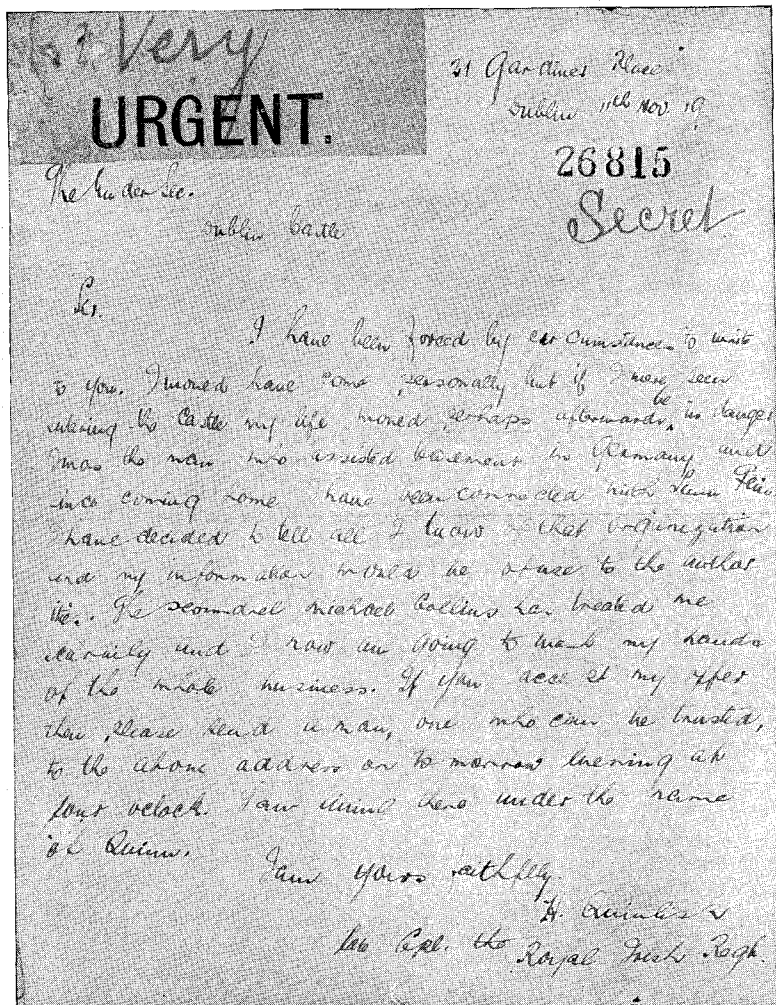 Very
URGENT.
31 Gardiner Place
Dublin 11th Nov 19
26815
Secret
The Under Sec.
Dublin Castle
Sir.
I have been forced by circumstances to write
to you. I would have come personally but if I was seen
entering the Castle my life would perhaps afterwards be in danger
I was the man who assisted Casement in Germany and
since coming home I have been connected with Sinn Fein
I have decided to tell all I know of that organization
and my information would be of use to the author
ities. The scoundrel Michael Collins has treated me
scurvily and I now am going to wash my hands
of the whole business. If you accept my offer
then please send a man, one who can be trusted,
to the above address on to morrow evening at
four oclock. I am living here under the name
of Quinn.
I am yours faithfully
H. Quinlisk
late Cpl. the Royal Irish Regt.